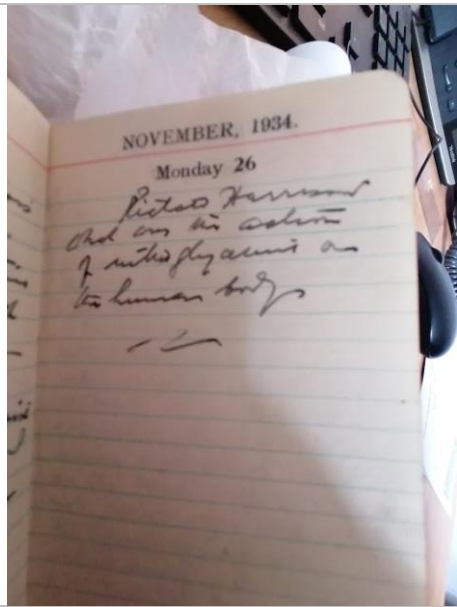 NOVEMBER, 1934.
Monday 26
Harrison
and on the action
of nitroglycerine on
the human body